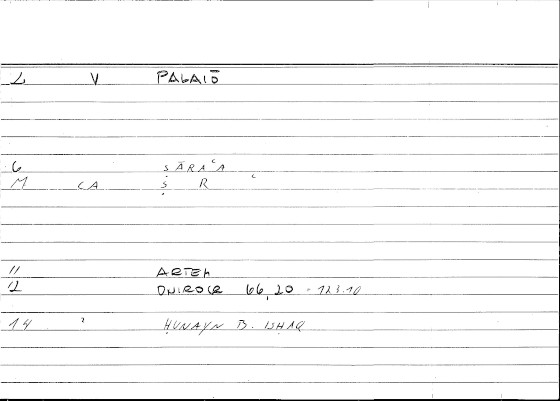 2 V PALAIŌ
6 ṢĀRAʿA
M CA Ṣ R ʿ
11 ARTEM
12 ONIROCR 66,20 - 123.10
14 ? ḤUNAYN B. ISḤĀQ